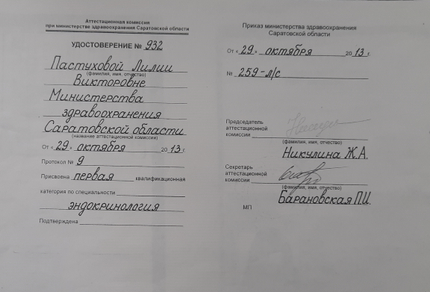 Аттестационная комиссия
при министерстве здравоохранения Саратовской области
УДОСТОВЕРЕНИЕ № 932
Пастуховой Лилии
(фамилия, имя, отчество)
Викторовне
Министерства
здравоохранения
Саратовской области
(название аттестационной комиссии)
От «29» октября 2013 г.
Протокол № 9
Присвоена первая квалификационная
категория по специальности
эндокринология
Подтверждена
Приказ министерства здравоохранения
Саратовской области
От «29» октября 2013 г.
№ 259-л/с
Председатель
аттестационной
комиссии
Никулина Ж.А.
(фамилия, имя, отчество)
Секретарь
аттестационной
комиссии
(фамилия, имя, отчество)
Барановская П.И.
МП